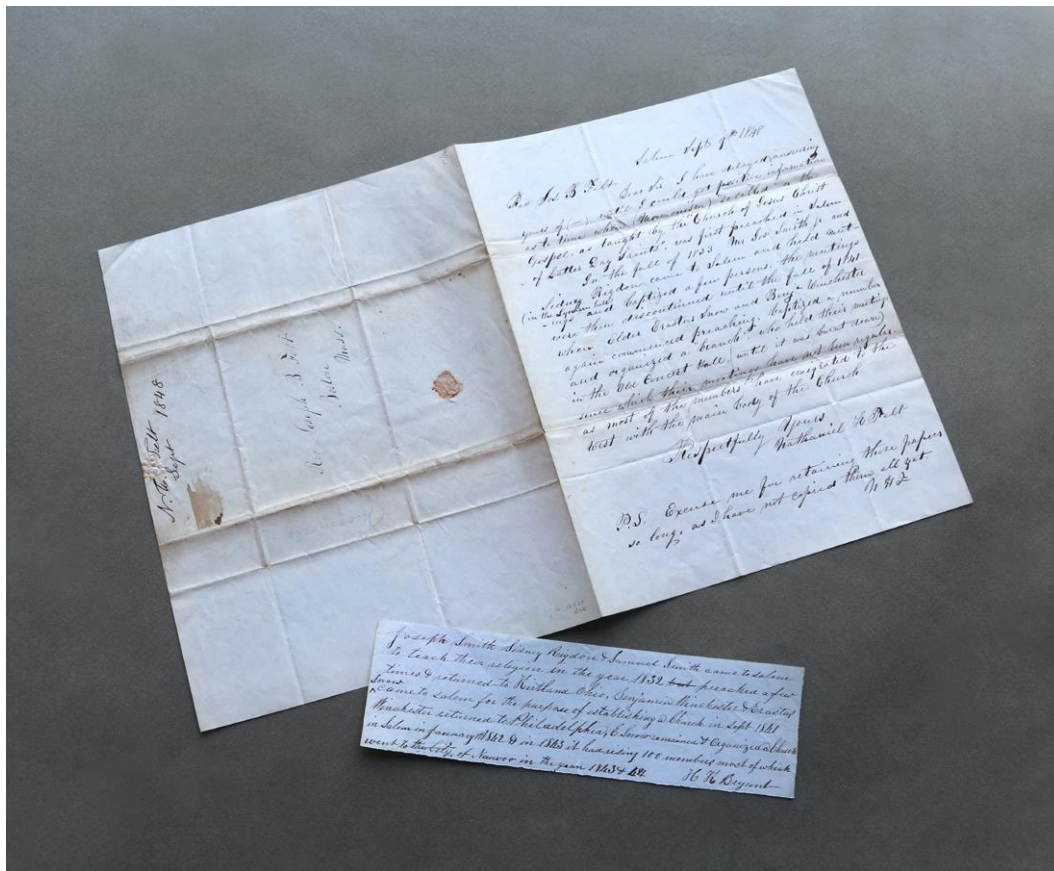 N. H. Felt 1848
Sept
Rev Joseph B. Felt
Boston
Mass.
Salem Sept 9th 1848
Rev Jos B Felt
Dear Sir. I have delayed answering
yours of (—) until I could get positive information
as to time when (Mormonism) so called or the
Gospel as taught by the "Church of Jesus Christ
of Latter Day Saints" was first preached in Salem
In the fall of 1833 Mr Jos Smith Jr and
Sidney Rigdon came to Salem and held meet-
(in the Lyceum Hall)
-ings and baptized a few persons, the meetings
were then discontinued until the fall of 1841
when Elder Erastus Snow and Benj Winchester
again commenced preaching, baptized a number
and organized a "branch" who held their meetings
in the Old Concert Hall (until it was burnt down)
since which their meetings have not been regular
as most of the members have emigrated to the
West with the main body of the Church
Respectfully Yours
Nathaniel H Felt
P.S. Excuse me for retaining those papers
so long, as I have not copied them all yet
N H F
Joseph Smith Sidney Rigdon & Samuel Smith came to salem
to teach their religion in the year 1832 preached a few
times & returned to Kirtland Ohio, Benjamin Winchester & Erastus
Snow
came to salem for the purpose of establishing a Church in sept 1841
Winchester returned to Philadelphia, E Snow remained & Organized a Church
in Salem in January 1842 & in 1843 it had rising 100 members most of which
went to the City of Nauvoo in the year 1843 & 44.